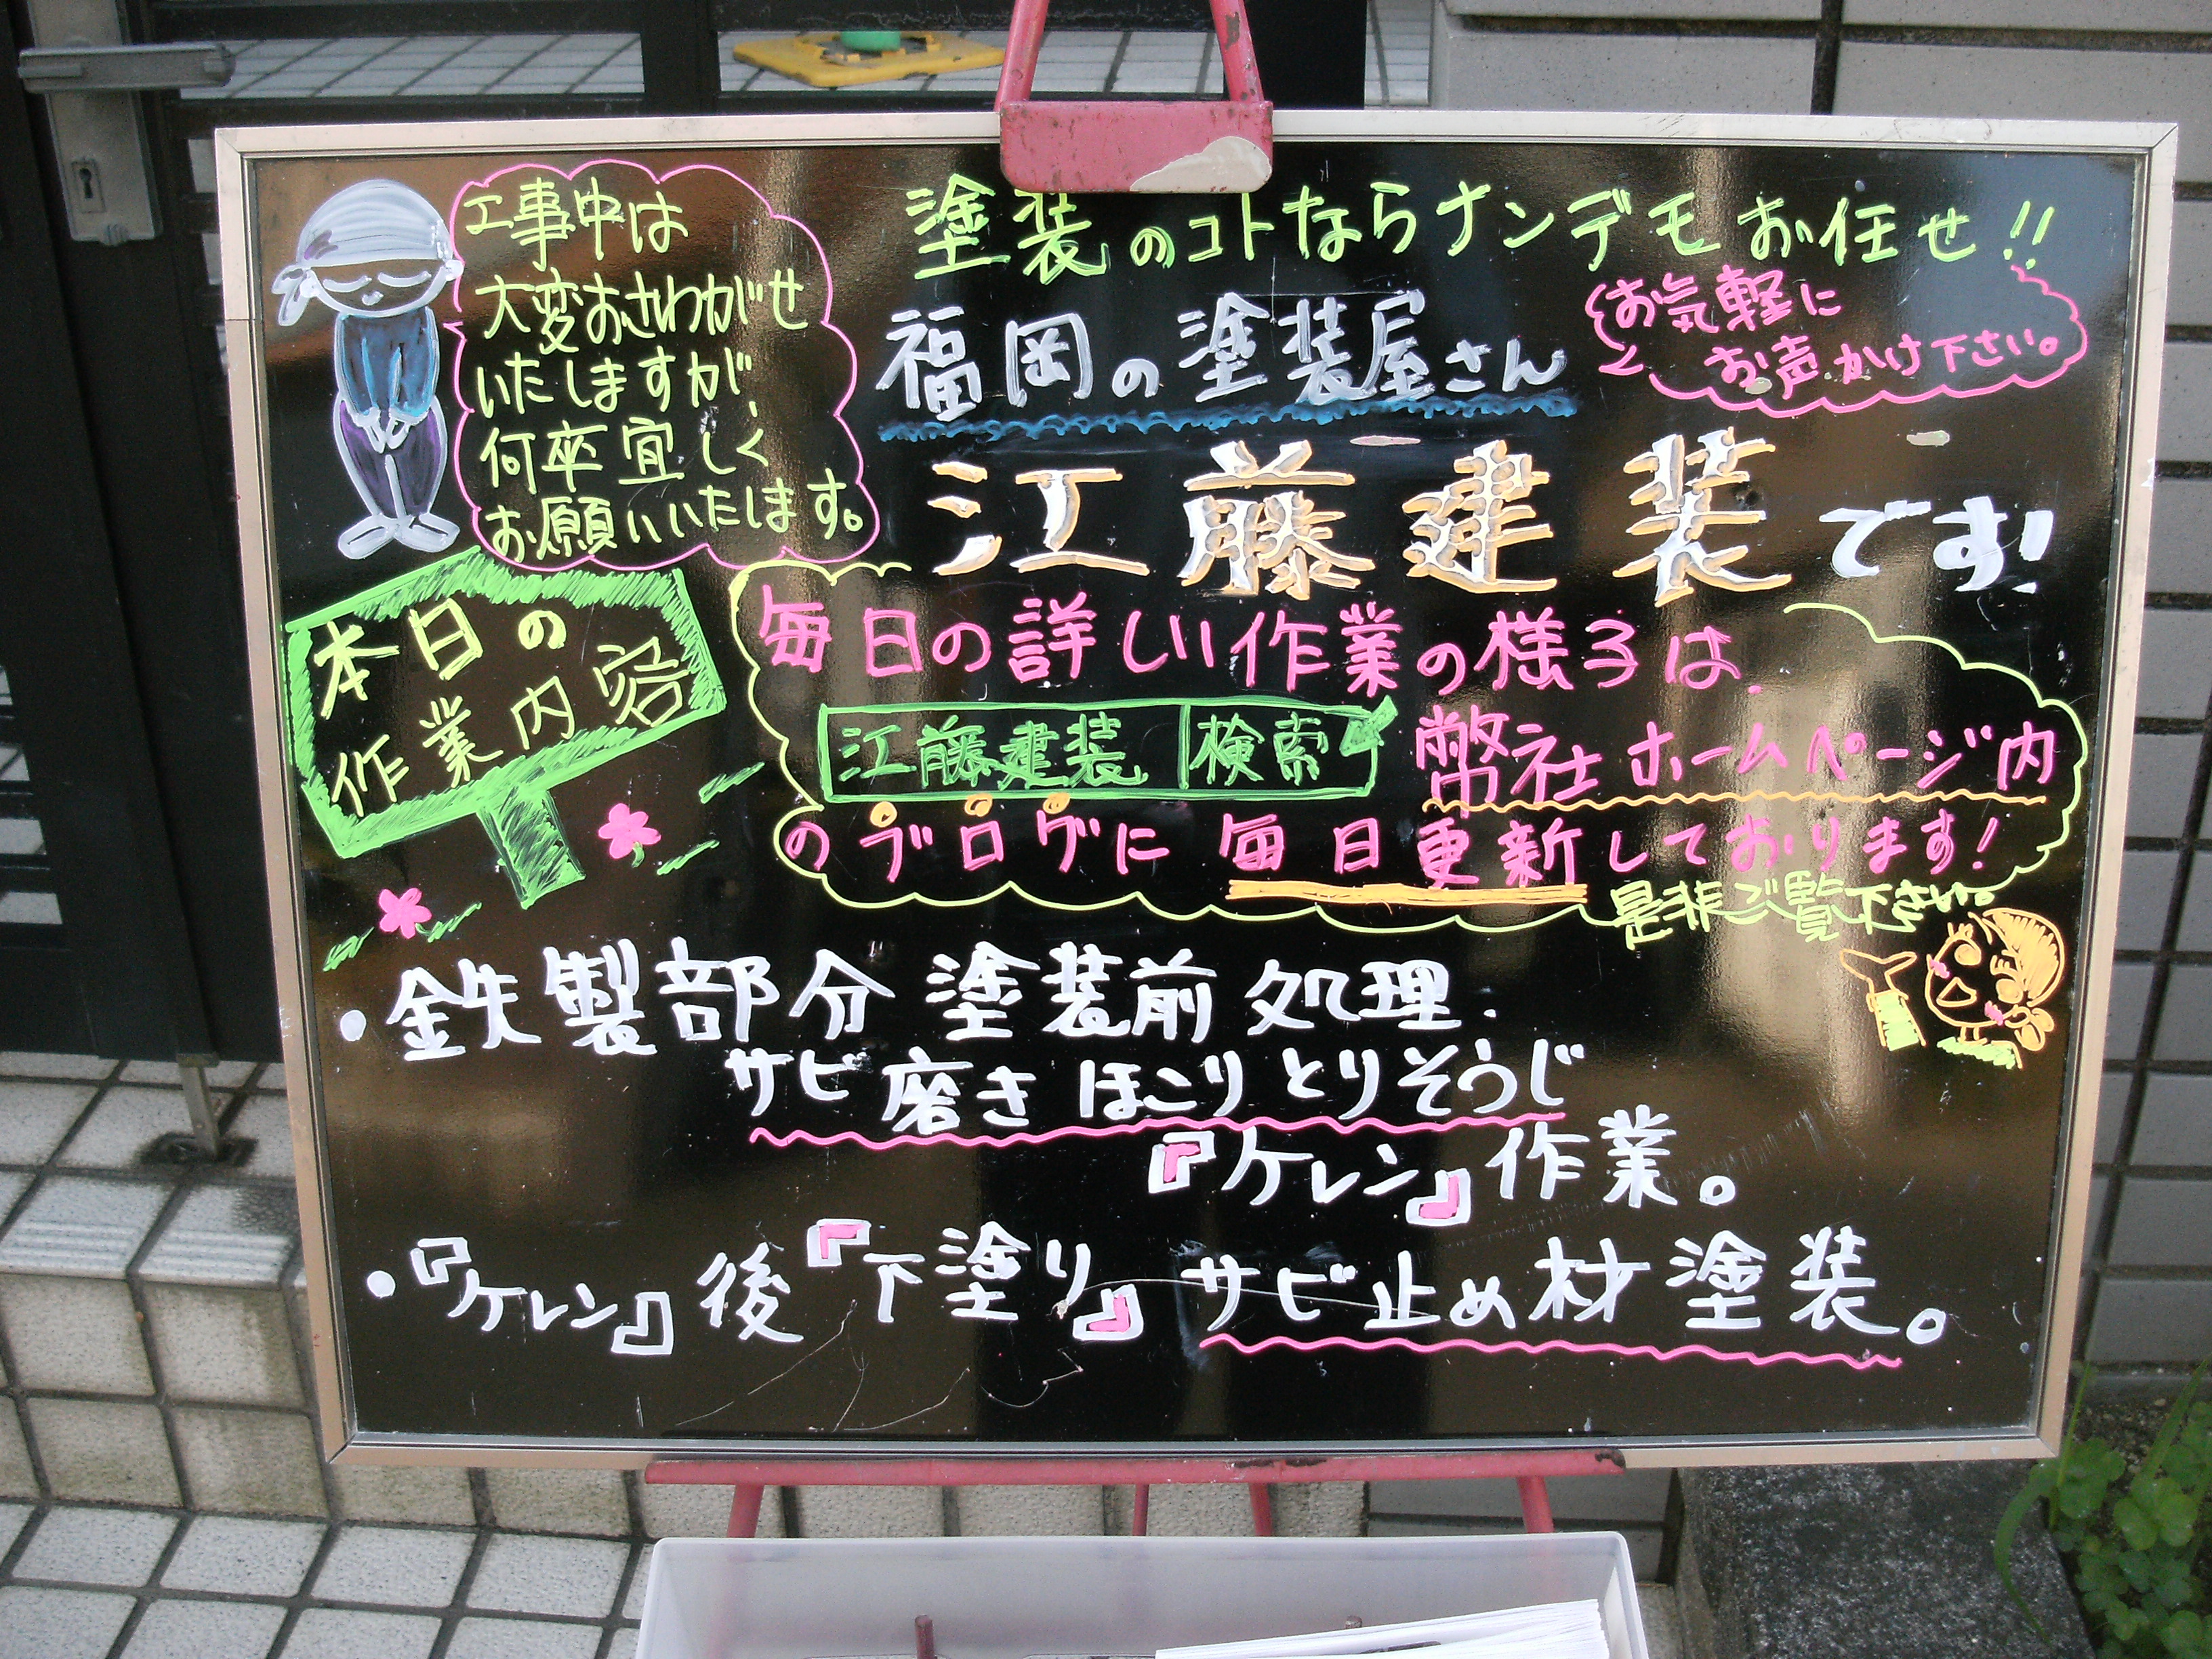 工事中は
大変おさわがせ
いたしますが、
何卒宜しく
お願いいたします。
塗装のコトならナンデモお任せ!!
お気軽に
お声かけ下さい。
福岡の塗装屋さん
江藤建装です!
本日の
作業内容
毎日の詳しい作業の様子は、
江藤建装 検索 弊社ホームページ内
のブログに毎日更新しております!
是非ご覧下さい。
・鉄製部分塗装前処理.
サビ磨きほこりとりそうじ
『ケレン』作業。
・『ケレン』後『下塗り』サビ止め材塗装。